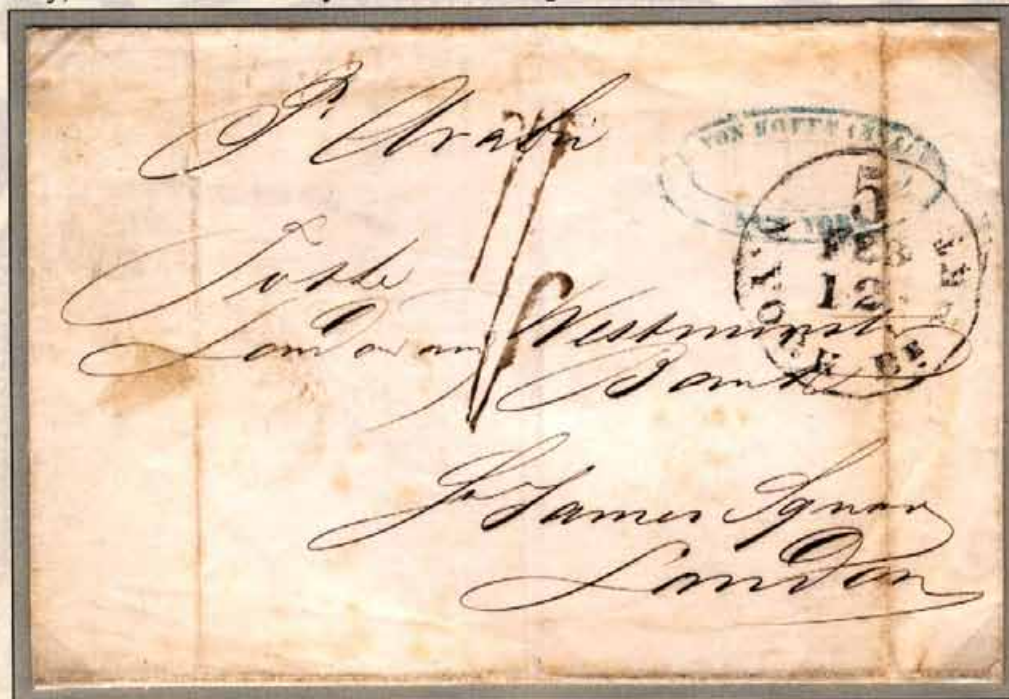 Pr Arabia
VON HOFFM
NEW YORK
5
FEB
12
BR PKT
1/
To the
London and Westminster
Bank
St James Square
London